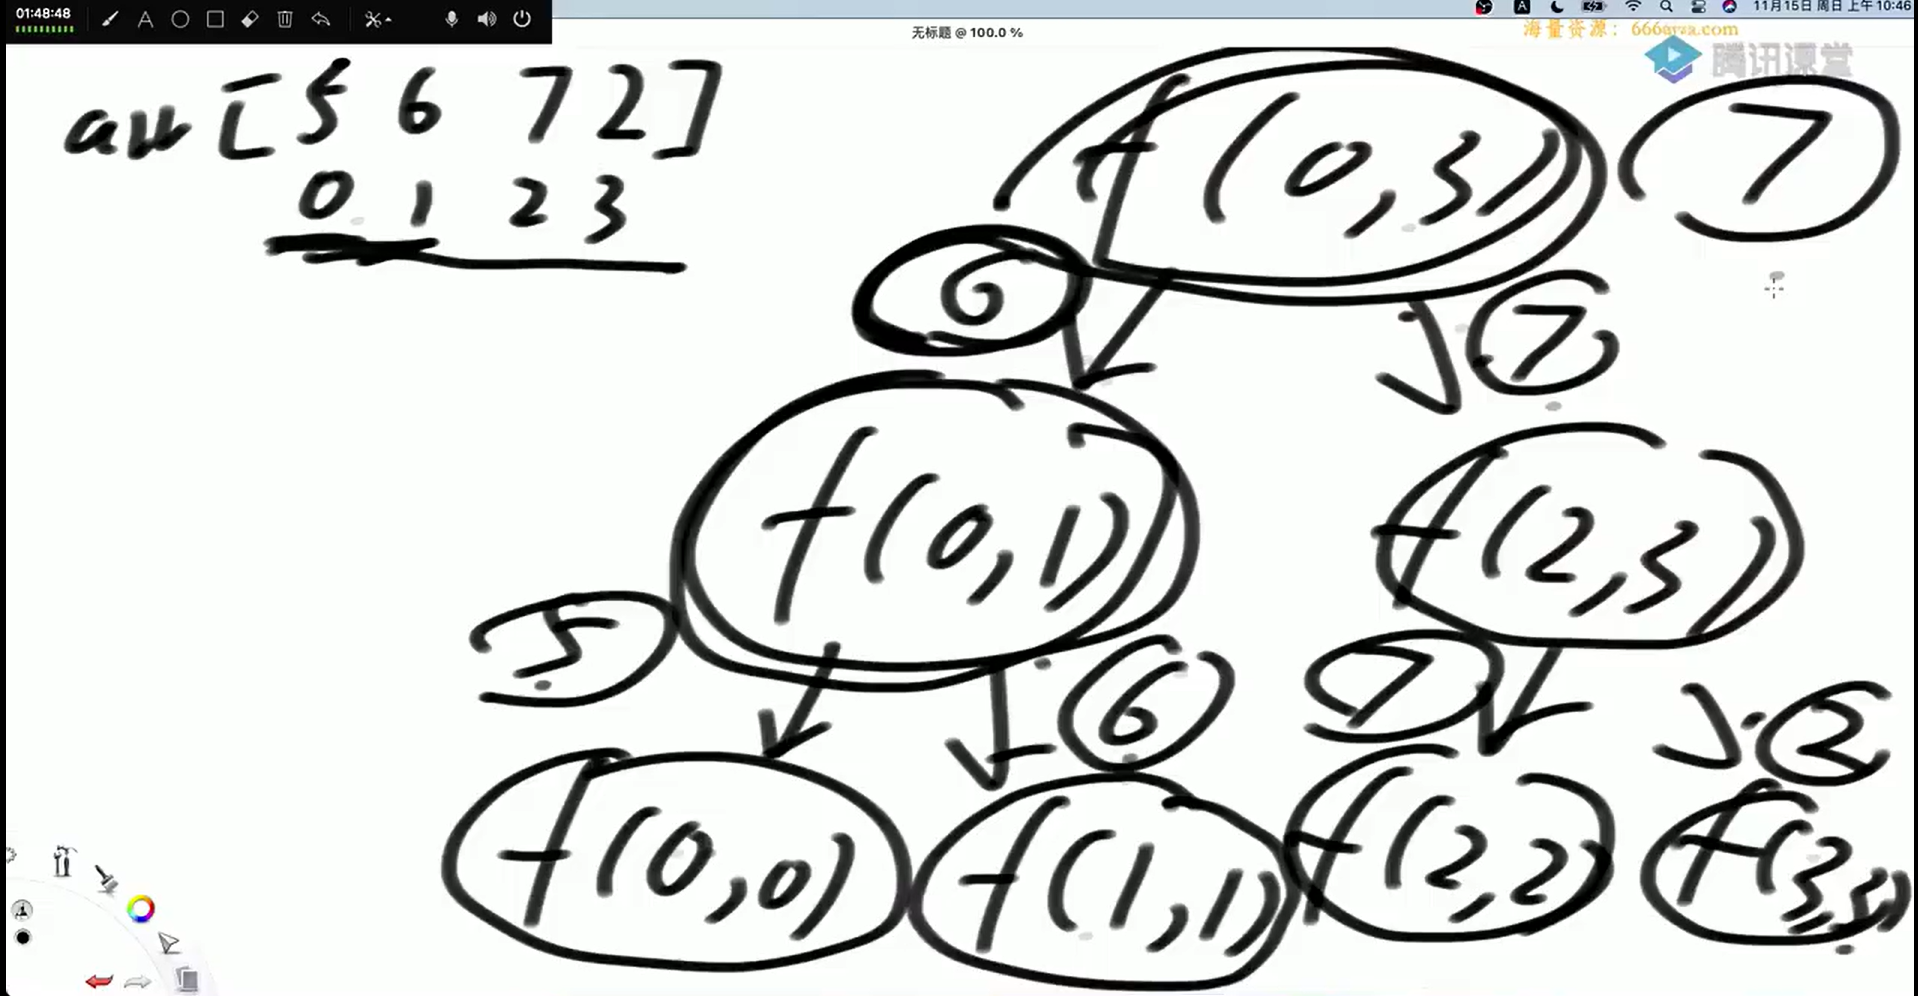 01:48:48
11月15日 周日 上午10:46
无标题 @ 100.0 %
海量资源：666java.com
腾讯课堂
arr [ 5 6 7 2 ]
0 1 2 3
f(0,3) 7
6 7
f(0,1) f(2,3)
5 6 7 2
f(0,0) f(1,1) f(2,2) f(3,3)